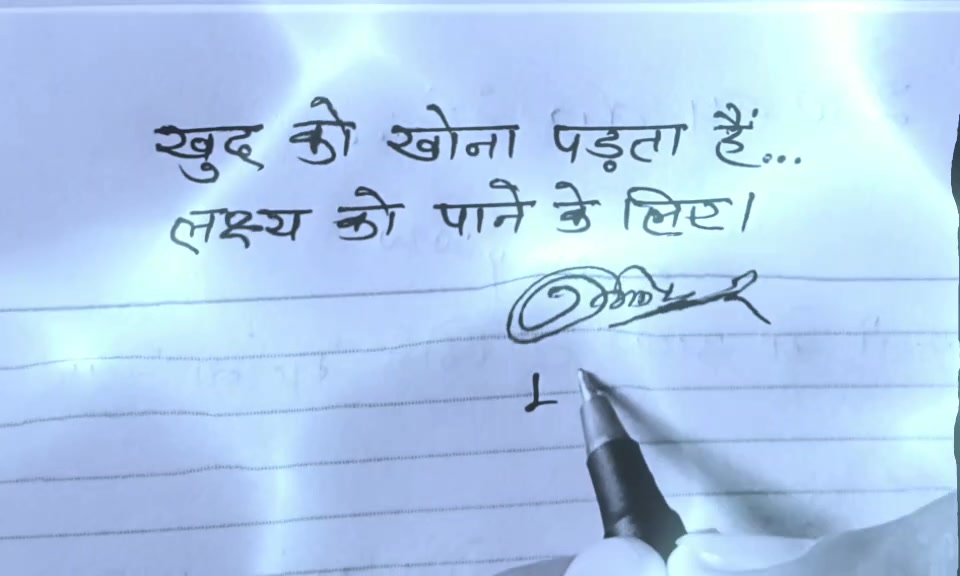 खुद को खोना पड़ता हैं...
लक्ष्य को पाने के लिए।
L